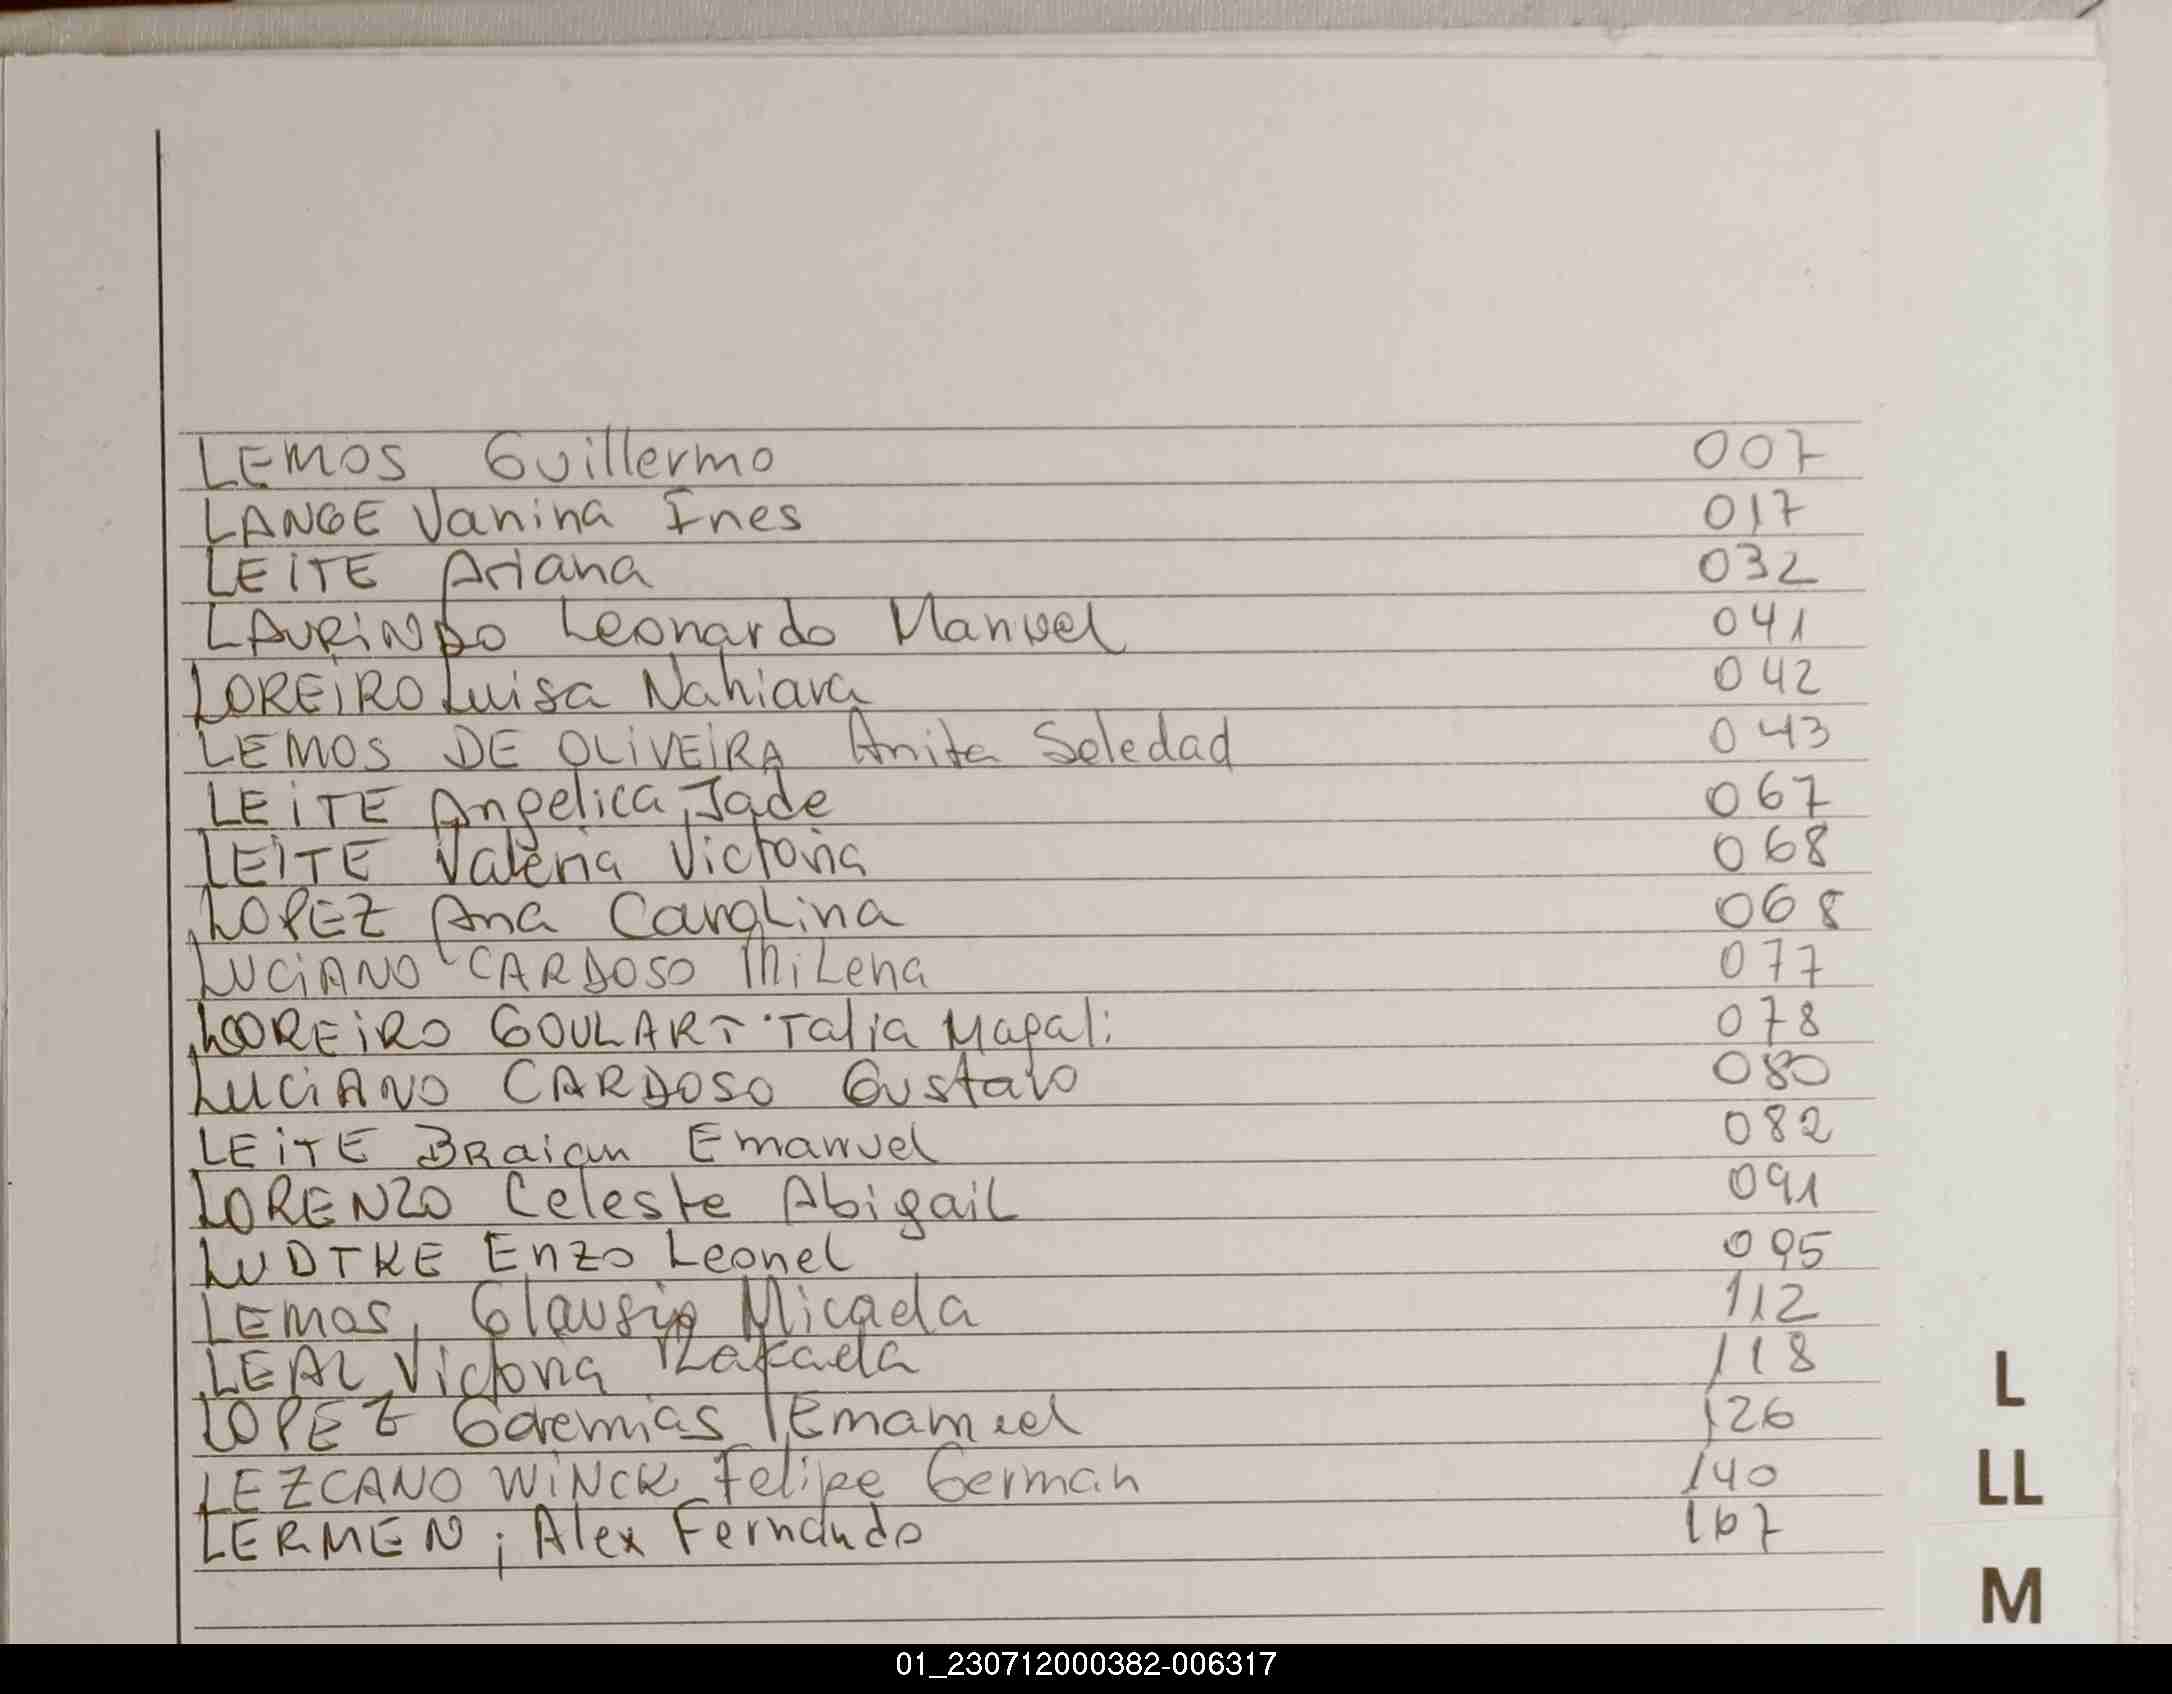 LEMOS Guillermo 007
LANGE Vanina Ines 017
LEITE Ariana 032
LAURINDO Leonardo Manuel 041
LOREIRO Luisa Nahiara 042
LEMOS DE OLIVEIRA Anita Soledad 043
LEITE Angelica Jade 067
LEITE Valeria Victoria 068
LOPEZ Ana Carolina 068
LUCIANO CARDOSO Milena 077
LOREIRO GOULART Talia Magali 078
LUCIANO CARDOSO Gustavo 080
LEITE BRaian Emanuel 082
LORENZO Celeste Abigail 091
LUDTKE Enzo Leonel 095
LEMOS, Micaela 112
LEAL Victoria 118
LOPEZ Emanuel 126
LEZCANO WINCK Felipe German 140
LERMEN ; Alex Fernando 167
L
LL
M
01_230712000382-006317